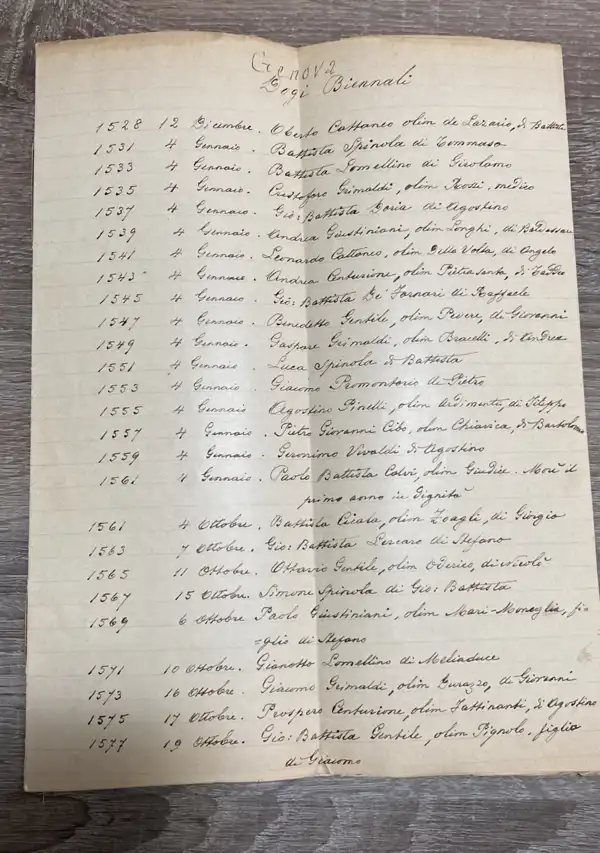 Genova
Dogi Biennali
1528 12 Dicembre. Oberto Cattaneo olim de Lazario, di Battista
1531 4 Gennaio. Battista Spinola di Tommaso
1533 4 Gennaio. Battista Lomellino di Girolamo
1535 4 Gennaio. Cristoforo Grimaldi, olim Rossi, medico
1537 4 Gennaio. Gio: Battista Doria di Agostino
1539 4 Gennaio. Andrea Giustiniani, olim Longhi, di Baldassare
1541 4 Gennaio. Leonardo Cattaneo, olim Della Volta, di Angelo
1543 4 Gennaio. Andrea Centurione, olim Pietrasanta, di
1545 4 Gennaio. Gio: Battista De Fornari di Raffaele
1547 4 Gennaio. Benedetto Gentile, olim Pevere, di Giovanni
1549 4 Gennaio. Gaspare Grimaldi, olim Bracelli, di Andrea
1551 4 Gennaio. Luca Spinola di Battista
1553 4 Gennaio. Giacomo Promontorio de Pietro
1555 4 Gennaio Agostino Pinelli, olim Ardimenti, di Filippo
1557 4 Gennaio. Pietro Giovanni Cibo, olim Chiavica, di Bartolomeo
1559 4 Gennaio. Geronimo Vivaldi di Agostino
1561 4 Gennaio. Paolo Battista Calvi, olim Giudice. Morì il
primo anno in Dignità
1561 4 Ottobre. Battista Cicala, olim Zoagli, di Giorgio
1563 7 Ottobre. Gio: Battista Lercaro di Stefano
1565 11 Ottobre. Ottavio Gentile, olim Oderico, di Nicolò
1567 15 Ottobre. Simone Spinola di Gio: Battista
1569 6 Ottobre Paolo Giustiniani, olim Mari-Moneglia, fi=
=glio di Stefano
1571 10 Ottobre. Gianotto Lomellino di Meliaduce
1573 16 Ottobre. Giacomo Grimaldi, olim Durazzo, di Giovanni
1575 17 Ottobre. Prospero Centurione, olim Fattinanti, di Agostino
1577 19 Ottobre. Gio: Battista Gentile, olim Pignolo, figlio
di Giacomo